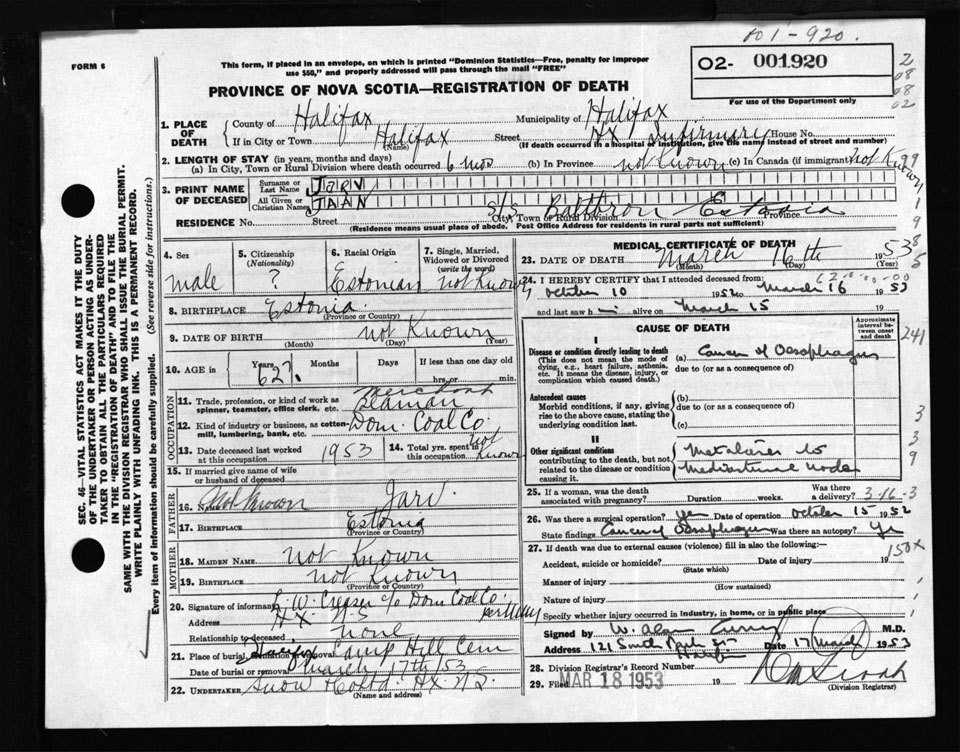 001-920.
FORM 6
This form, if placed in an envelope, on which is printed "Dominion Statistics—Free, penalty for improper
use $50," and properly addressed will pass through the mail "FREE"
O2- 001920
For use of the Department only
PROVINCE OF NOVA SCOTIA—REGISTRATION OF DEATH
1. PLACE OF DEATH
County of Halifax Municipality of Halifax
If in City or Town Halifax (Name) Street Hx Infirmary House No.
(If death occurred in a hospital or institution, give the name instead of street and number)
2. LENGTH OF STAY (in years, months and days)
(a) In City, Town or Rural Division where death occurred 6 mos (b) In Province not Known (c) In Canada (if immigrant) not Known
3. PRINT NAME OF DECEASED
Surname or Last Name JARV
All Given or Christian Names JAAN
RESIDENCE No. Street S/S Estonia
City, Town or Rural Division Province
(Residence means usual place of abode. Post Office Address for residents in rural parts not sufficient)
4. Sex male
5. Citizenship (Nationality) ?
6. Racial Origin Estonian
7. Single, Married, Widowed or Divorced (write the word) not Known
8. BIRTHPLACE Estonia
(Province or Country)
9. DATE OF BIRTH not Known
(Month) (Day) (Year)
10. AGE in Years 62? Months Days If less than one day old
hrs. or min.
OCCUPATION
11. Trade, profession, or kind of work as spinner, teamster, office clerk, etc. Merchant Seaman
12. Kind of industry or business, as cotton-mill, lumbering, bank, etc. Dom. Coal Co.
13. Date deceased last worked at this occupation 1953
14. Total yrs. spent in this occupation not Known
15. If married give name of wife or husband of deceased
FATHER
16. Name not Known Jarv.
17. BIRTHPLACE Estonia
(Province or Country)
MOTHER
18. MAIDEN NAME not Known
19. BIRTHPLACE not Known
(Province or Country)
20. Signature of informant W. Creaser c/o Dom Coal Co.
Address Hx. N.S
Relationship to deceased none
21. Place of burial, cremation or removal Camp Hill Cem
Date of burial or removal March 17th/53
22. UNDERTAKER Snow & Co Ltd. Hx N.S.
(Name and address)
MEDICAL CERTIFICATE OF DEATH
23. DATE OF DEATH March 16th 1953
(Month) (Day) (Year)
24. I HEREBY CERTIFY that I attended deceased from
October 10 1952 to March 16 1953
and last saw h im alive on March 15 19
CAUSE OF DEATH
Approximate interval between onset and death
I
Disease or condition directly leading to death (a) Cancer of Oesophagus
(This does not mean the mode of dying, e.g., heart failure, asthenia, etc. It means the disease, injury, or complication which caused death.)
due to (or as a consequence of)
Antecedent causes
Morbid conditions, if any, giving rise to the above cause, stating the underlying condition last.
(b)
due to (or as a consequence of)
(c)
II
Other significant conditions contributing to the death, but not related to the disease or condition causing it.
Metastases to
Mediastinal nodes
25. If a woman, was the death associated with pregnancy? Duration weeks. Was there a delivery? 3-16-3
26. Was there a surgical operation? yes Date of operation October 15 1952
State findings Cancer of Oesophagus Was there an autopsy? Yes
27. If death was due to external causes (violence) fill in also the following:—
Accident, suicide or homicide? Date of injury 19
(State which)
Manner of injury
(How sustained)
Nature of injury
Specify whether injury occurred in industry, in home, or in public place
Signed by W. Alan Curry M.D.
Address 121 South Park St Date 17 March 1953
Halifax
28. Division Registrar's Record Number
29. Filed MAR 18 1953 19
(Division Registrar)
241
150x
SEC. 46—VITAL STATISTICS ACT MAKES IT THE DUTY
OF THE UNDERTAKER OR PERSON ACTING AS UNDER-
TAKER TO OBTAIN ALL THE PARTICULARS REQUIRED
IN THE "REGISTRATION OF DEATH" AND TO FILE THE
SAME WITH THE DIVISION REGISTRAR WHO SHALL ISSUE THE BURIAL PERMIT.
WRITE PLAINLY WITH UNFADING INK. THIS IS A PERMANENT RECORD.
Every item of information should be carefully supplied. (See reverse side for instructions.)